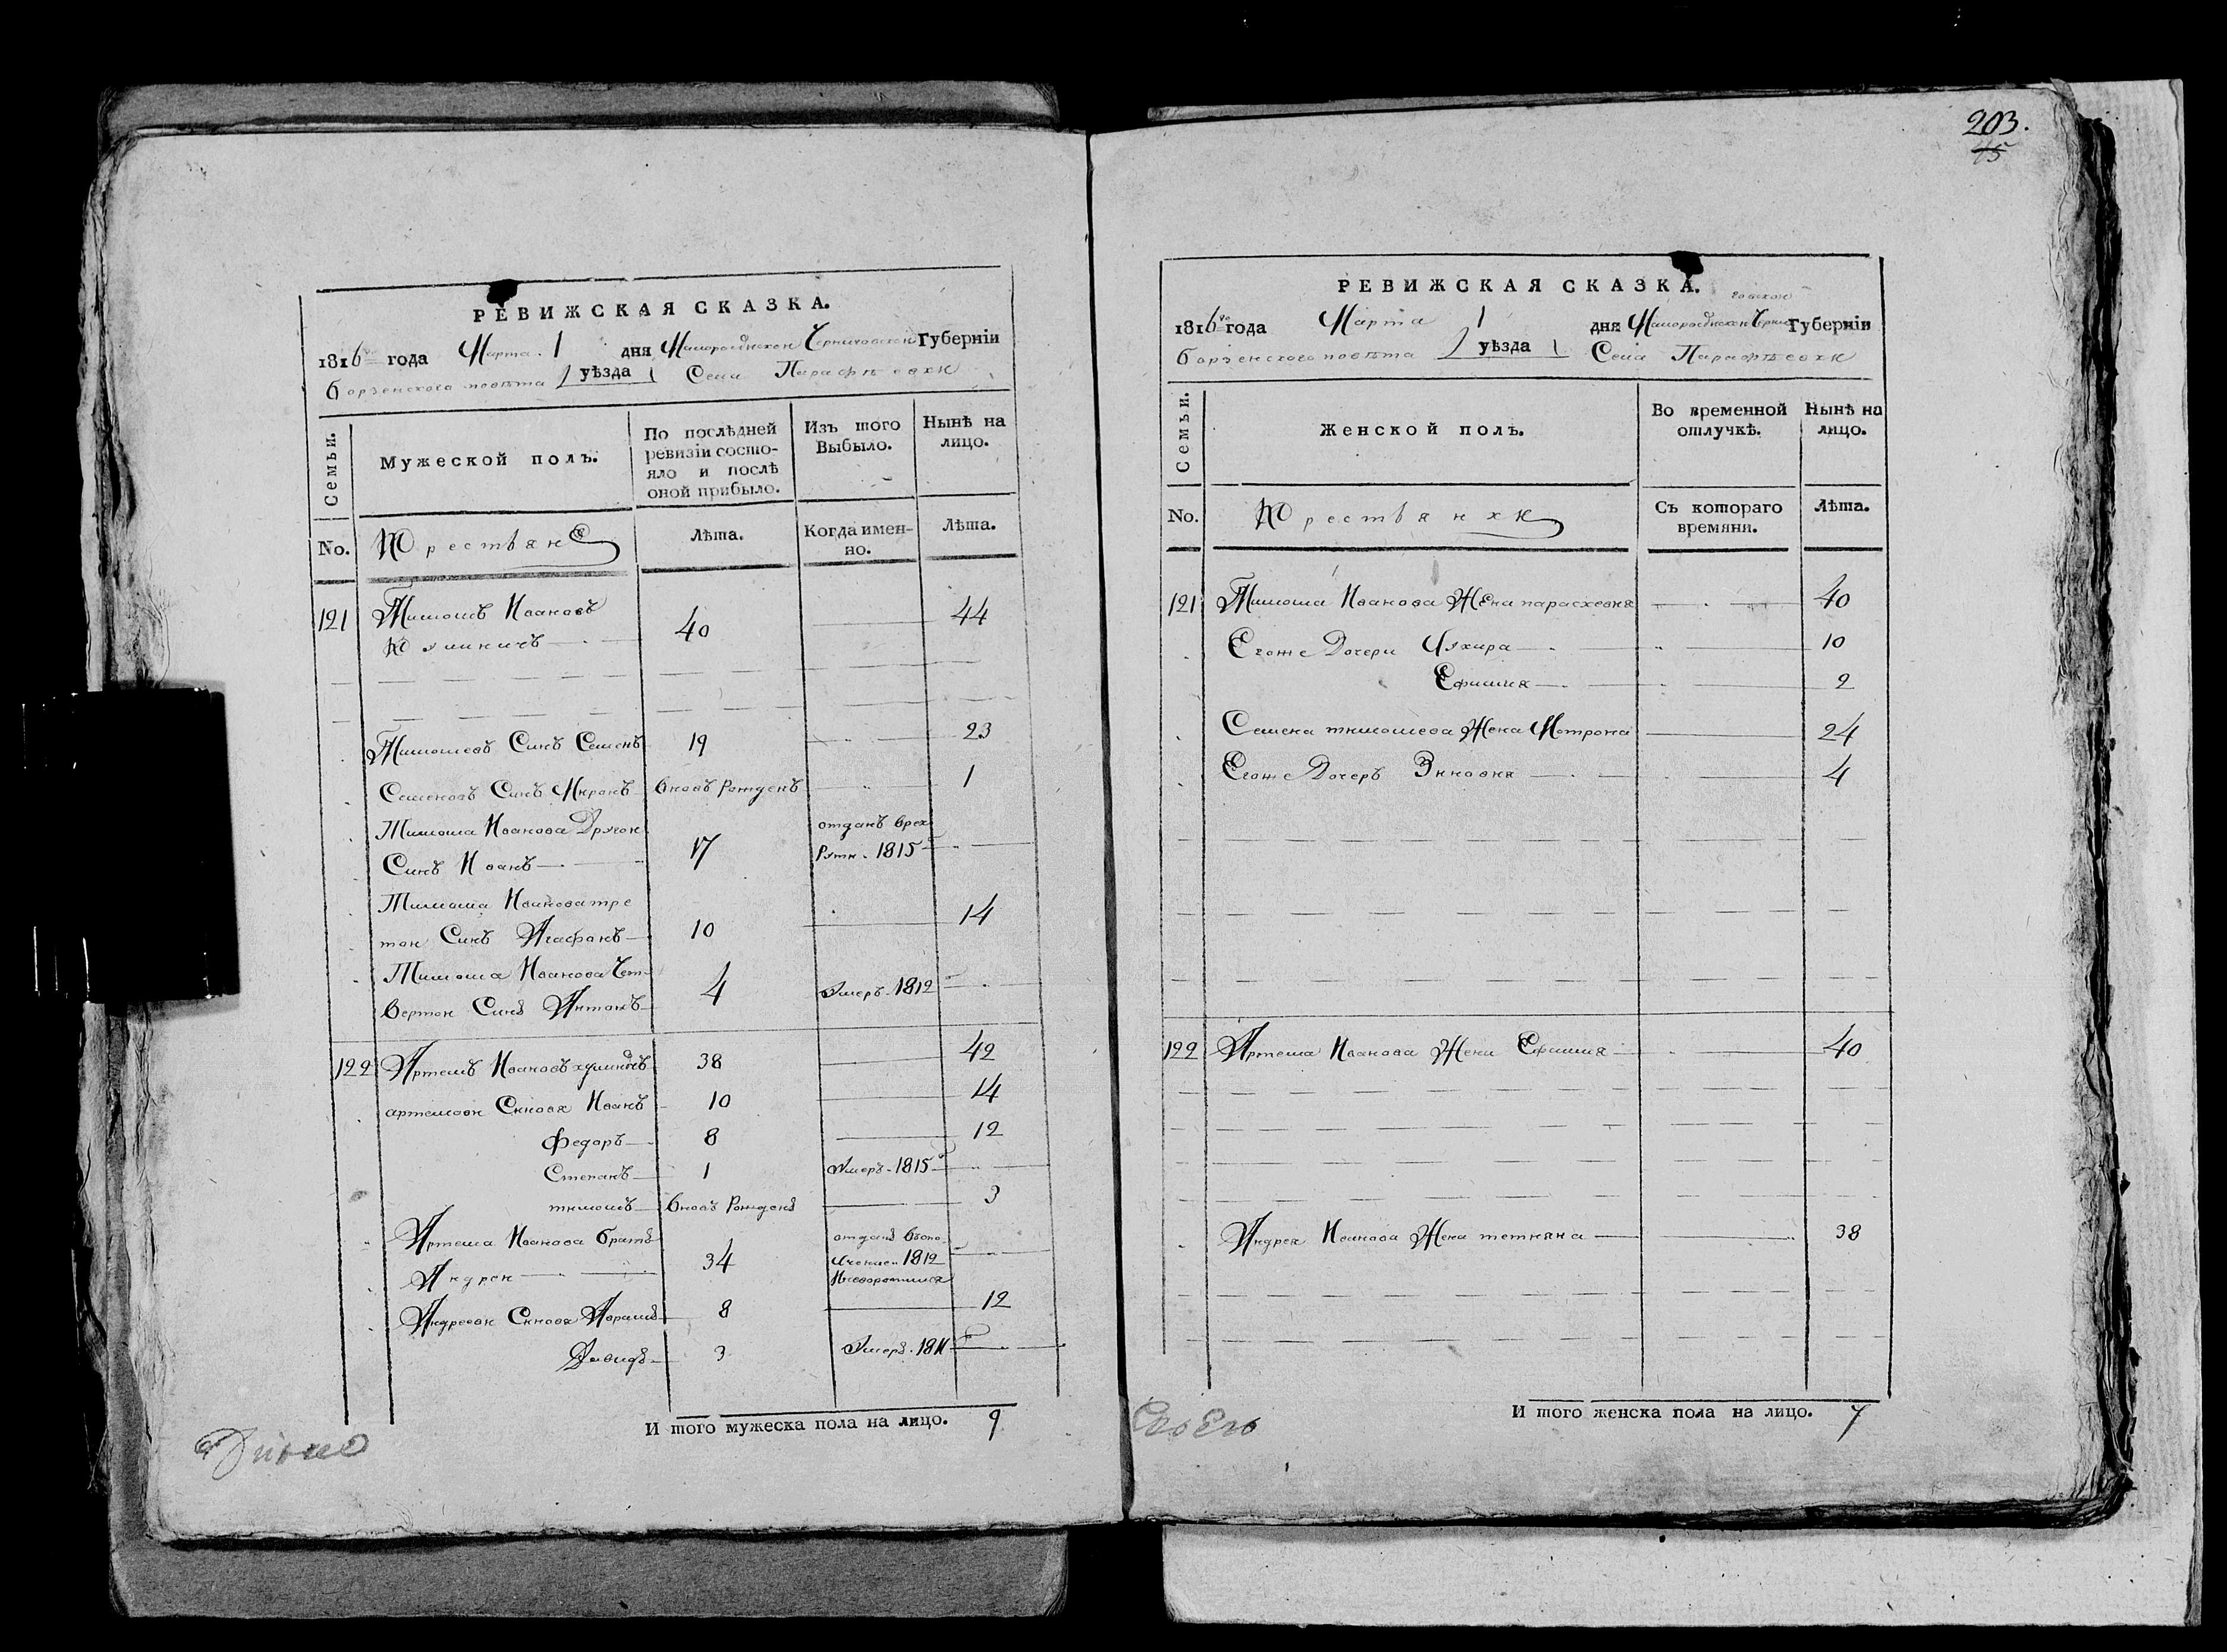 РЕВИЖСКАЯ СКАЗКА.
1816го года Марта 1 дня Малороссійской Черниговской Губерніи
борзенского повѣта уѣзда Села Парафѣевки
Семьи.
Мужеской полъ.
По послѣдней ревизіи состо-
яло и послѣ
оной прибыло.
Изъ того
Выбыло.
Нынѣ на
лицо.
No.
Крестьяне
Лѣта.
Когда имен-
но.
Лѣта.
121 Тимошъ Ивановъ
40 44
Тимошевъ Синъ Семенъ 19 23
Семеновъ Синъ вновь Рожденъ 1
Тимоша Иванова Другой отданъ врек
Синъ Иванъ 17 Рути 1815
Тимоша Иванова тре
той Синъ Агафонъ 10 14
Тимоша Иванова Чет-
вертой Синъ Антонъ 4 Умеръ 1812
122 Артемъ Ивановъ 38 42
артемови Синовя Иванъ 10 14
Федоръ 8 12
Степанъ 1 Умеръ 1815
тимошъ вновь Рожденъ 3
Артема Иванова братъ отданъ
Андрей 34 1812
Андреови Синовя Аврамъ 8 12
Давидъ 3 Умеръ 1811
И того мужеска пола на лицо. 9
203.
15
РЕВИЖСКАЯ СКАЗКА.
1816го года Марта 1 дня Малороссійской Черниговской Губерніи
борзенского повѣта уѣзда Села Парафѣевки
Семьи.
Женской полъ.
Во временной
отлучкѣ.
Нынѣ на
лицо.
No.
Крестьянки
Съ котораго
времяни.
Лѣта.
121 Тимоша Иванова Жена парасковия 40
Егоже Дочери 10
Ефимия 2
Семена тимошева Жена Мотрона 24
Егоже Дочеръ Зиновия 4
122 Артема Иванова Жена Ефимия 40
Андрея Иванова Жена тетияна 38
И того женска пола на лицо. 7